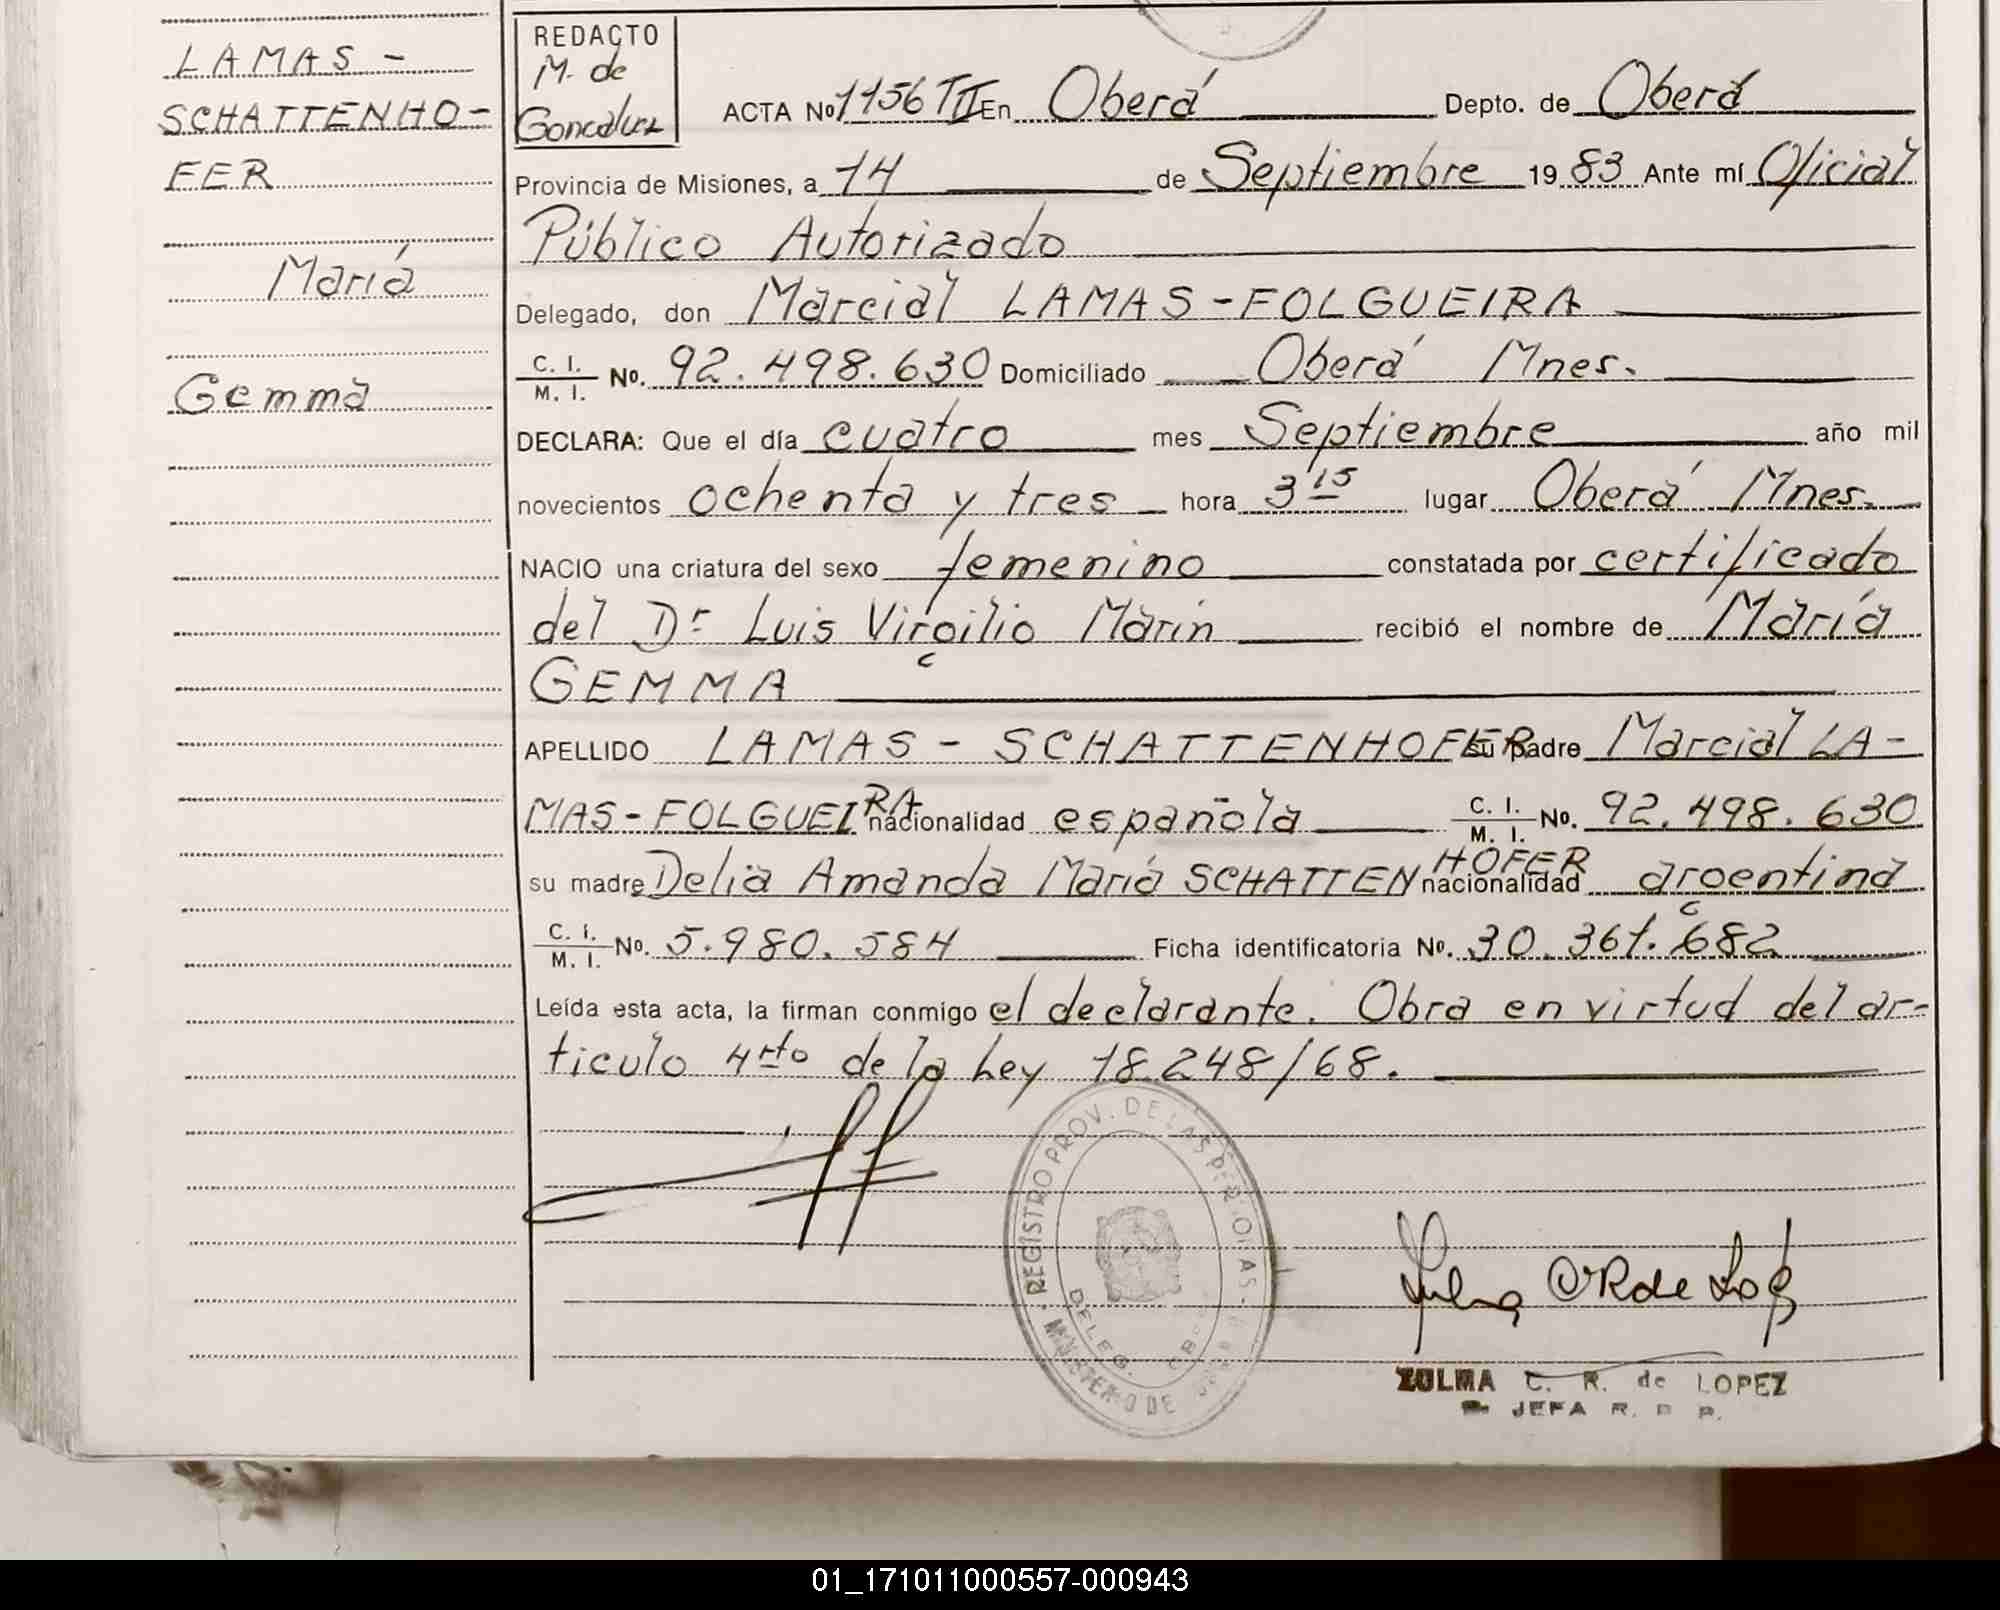 LAMAS -
SCHATTENHO-
FER
María
Gemma
REDACTO
M. de
Goncalvez
ACTA No 1156 TII En Oberá Depto. de Oberá
Provincia de Misiones, a 14 de Septiembre 1983 Ante mí Oficial
Público Autorizado
Delegado, don Marcial LAMAS-FOLGUEIRA
C. I. / M. I. No. 92.498.630 Domiciliado Oberá Mnes.
DECLARA: Que el día cuatro mes Septiembre año mil
novecientos ochenta y tres hora 3 15 lugar Oberá Mnes.
NACIO una criatura del sexo femenino constatada por certificado
del Dr Luis Virgilio Marin recibió el nombre de María
GEMMA
APELLIDO LAMAS - SCHATTENHOFER su padre Marcial LA-
MAS-FOLGUEIRA nacionalidad española C. I. / M. I. No. 92.498.630
su madre Delia Amanda María SCHATTENHOFER nacionalidad argentina
C. I. / M. I. No. 5.980.584 Ficha identificatoria No. 30.361.682
Leída esta acta, la firman conmigo el declarante. Obra en virtud del ar-
ticulo 4rto de la Ley 18.248/68.
REGISTRO PROV. DE LAS PERSONAS
MINISTERIO DE
DELEG.
ZULMA C. R. de LOPEZ
JEFA R. P. P.
01_171011000557-000943